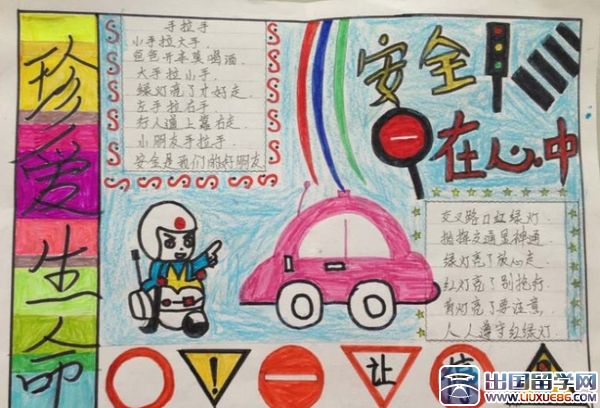 珍爱生命
手拉手
小手拉大手.
爸爸开车莫喝酒
大手拉小手.
绿灯亮了才好走.
左手拉右手
行人道上靠右走.
小朋友手拉手.
安全是我们的好朋友
安全
在心中
交叉路口红绿灯.
指挥交通显神通
绿灯亮了放心走.
红灯亮了别抢行
黄灯亮了要注意.
人人遵守红绿灯.
让
出国留学网
WWW.LIUXUE86.COM